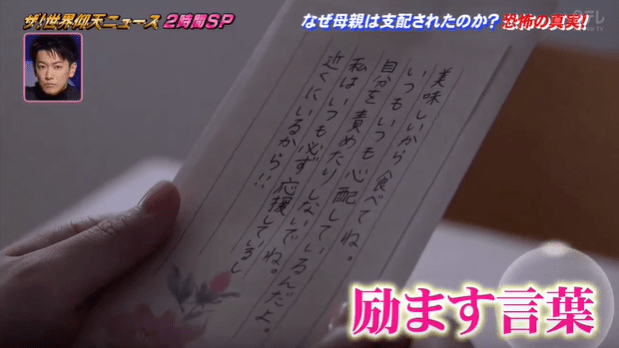 ザ!世界仰天ニュース 2時間SP
なぜ母親は支配されたのか?恐怖の真実!
美味しいから食べてね。
いつもいつも心配しているんだよ。
自分を責めたりしないでね。
私はいつも必ず応援しているし
近くにいるから!!
励ます言葉